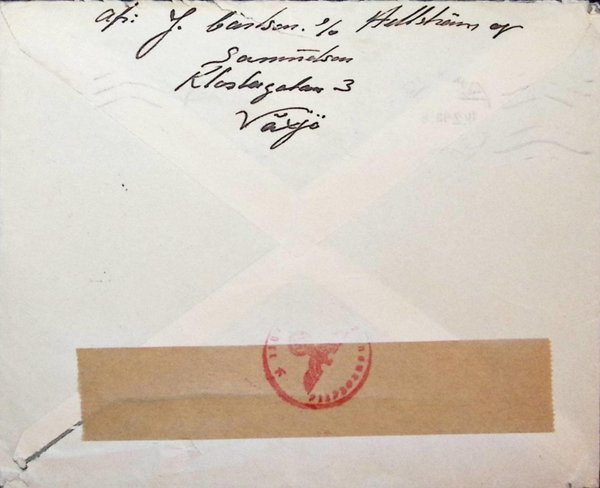 Afs: J. Carlson. c/o Hellström og
Samuelson
Klostergatan 3
Växjö